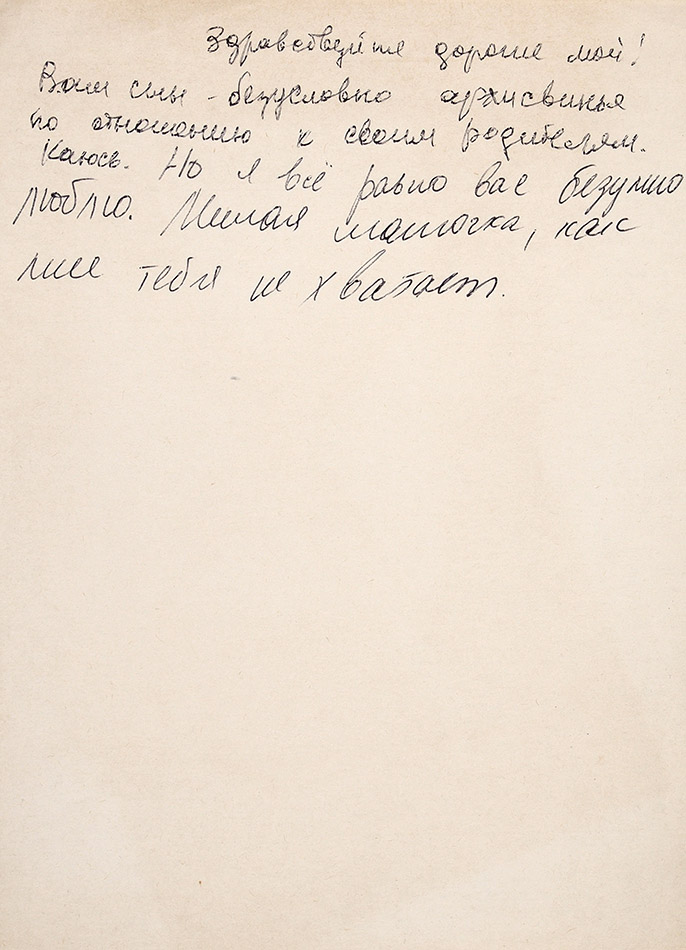 Здравствуйте дорогие мои!
Ваш сын - безусловно архисвинья
по отношению к своим родителям.
Каюсь. Но я всё равно вас безумно
люблю. Милая мамочка, как
мне тебя не хватает.